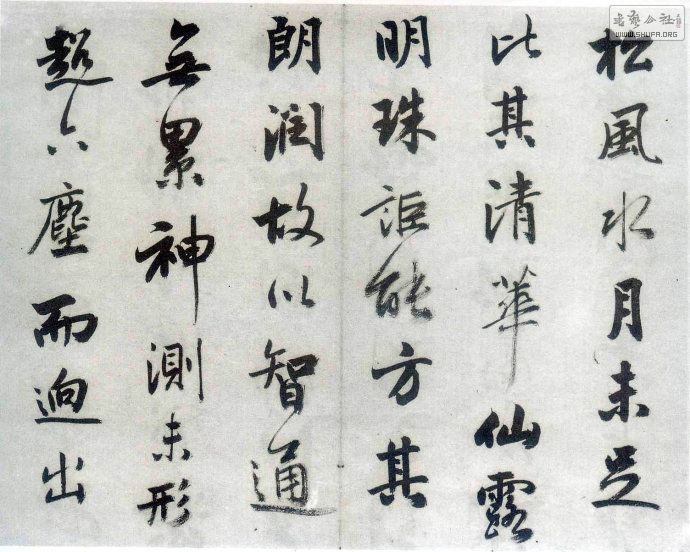 松風水月未足
比其清華仙露
明珠詎能方其
朗潤故以智通
無累神測未形
超六塵而迥出
WWW.SHUFA.ORG